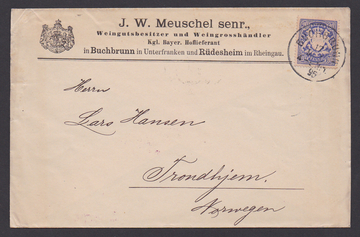 J. W. Meuschel senr.,
Weingutsbesitzer und Weingrosshändler
Kgl. Bayer. Hoflieferant
in Buchbrunn in Unterfranken und Rüdesheim im Rheingau.
Herrn
Lars Hansen
Trondhjem.
Norwegen